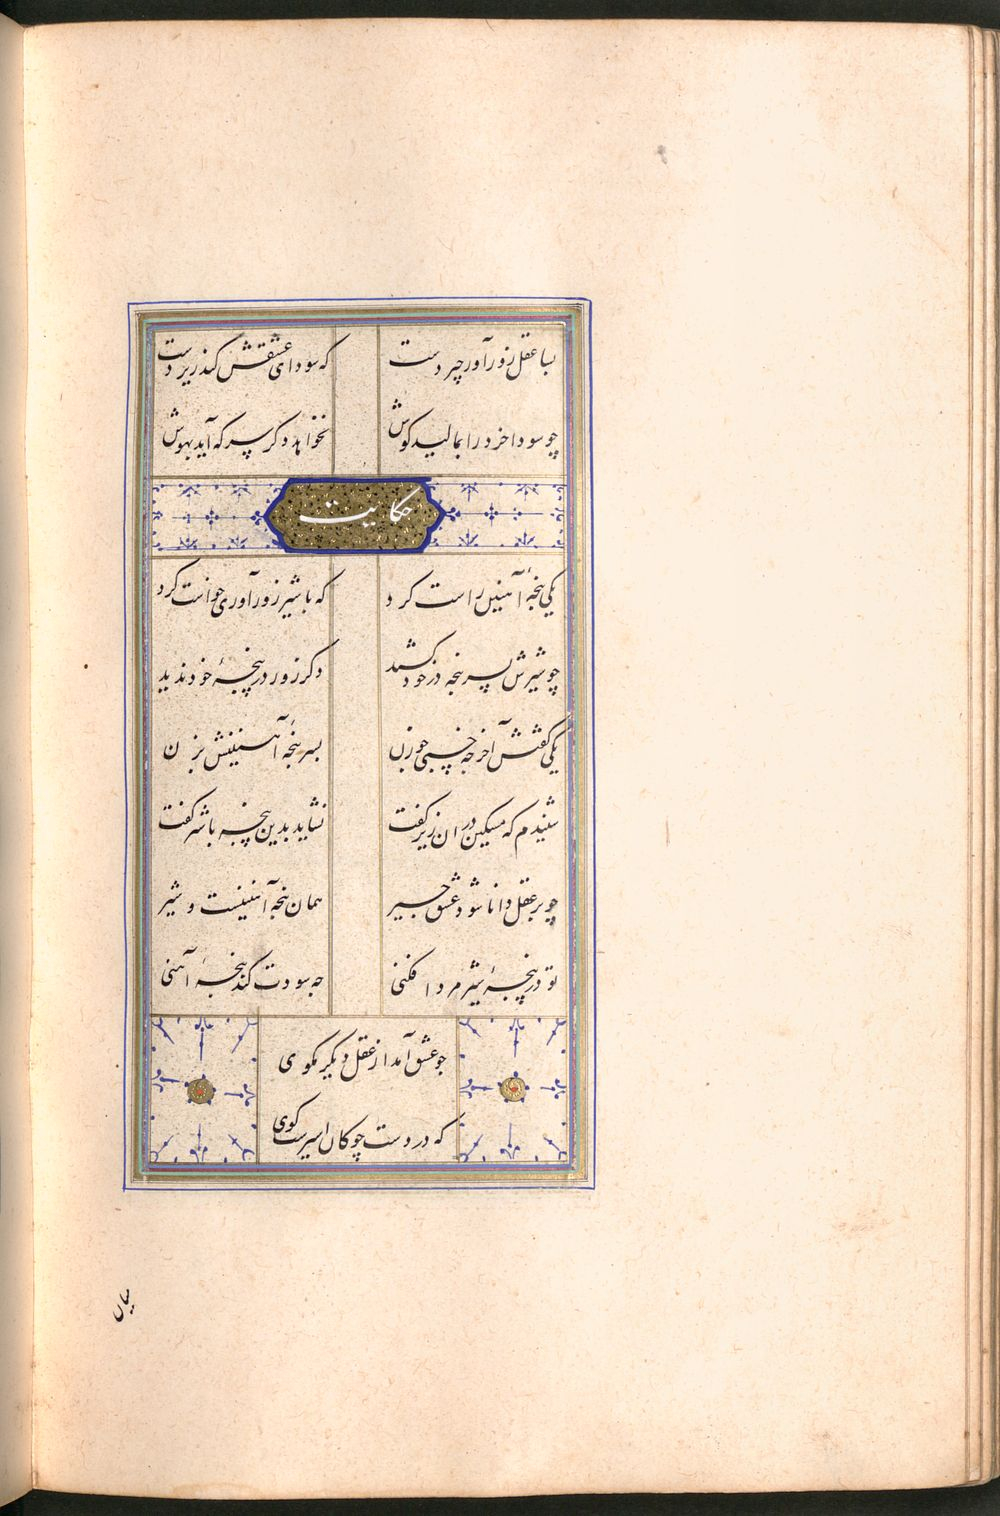 بسا عقل زورآور چیر دست که سودای عشقش کند زیردست
چو سودا خرد را بمالید کوش نخواهد دکر سر که آید بهوش
حکایت
یکی پنجهٔ آهنین راست کرد که با شیر زورآوری خواست کرد
چو شیرش بسر پنجه در خود کشید دکر زور در پنجهٔ خود ندید
یکی کفتش آخر چه خسبی چو زن بسر پنجهٔ آهنینش بزن
شنیدم که مسکین در ان زیر کفت نشاید بدین پنجه با شیر کفت
چو بر عقل دانا شود عشق چیر همان پنجهٔ آهنینست و شیر
تو در پنجهٔ شیر مرد افکنی چه سودت کند پنجهٔ آهنی
جو عشق آمد از عقل دیکر مکوی
که در دست چوکان اسیرست کوی
میان